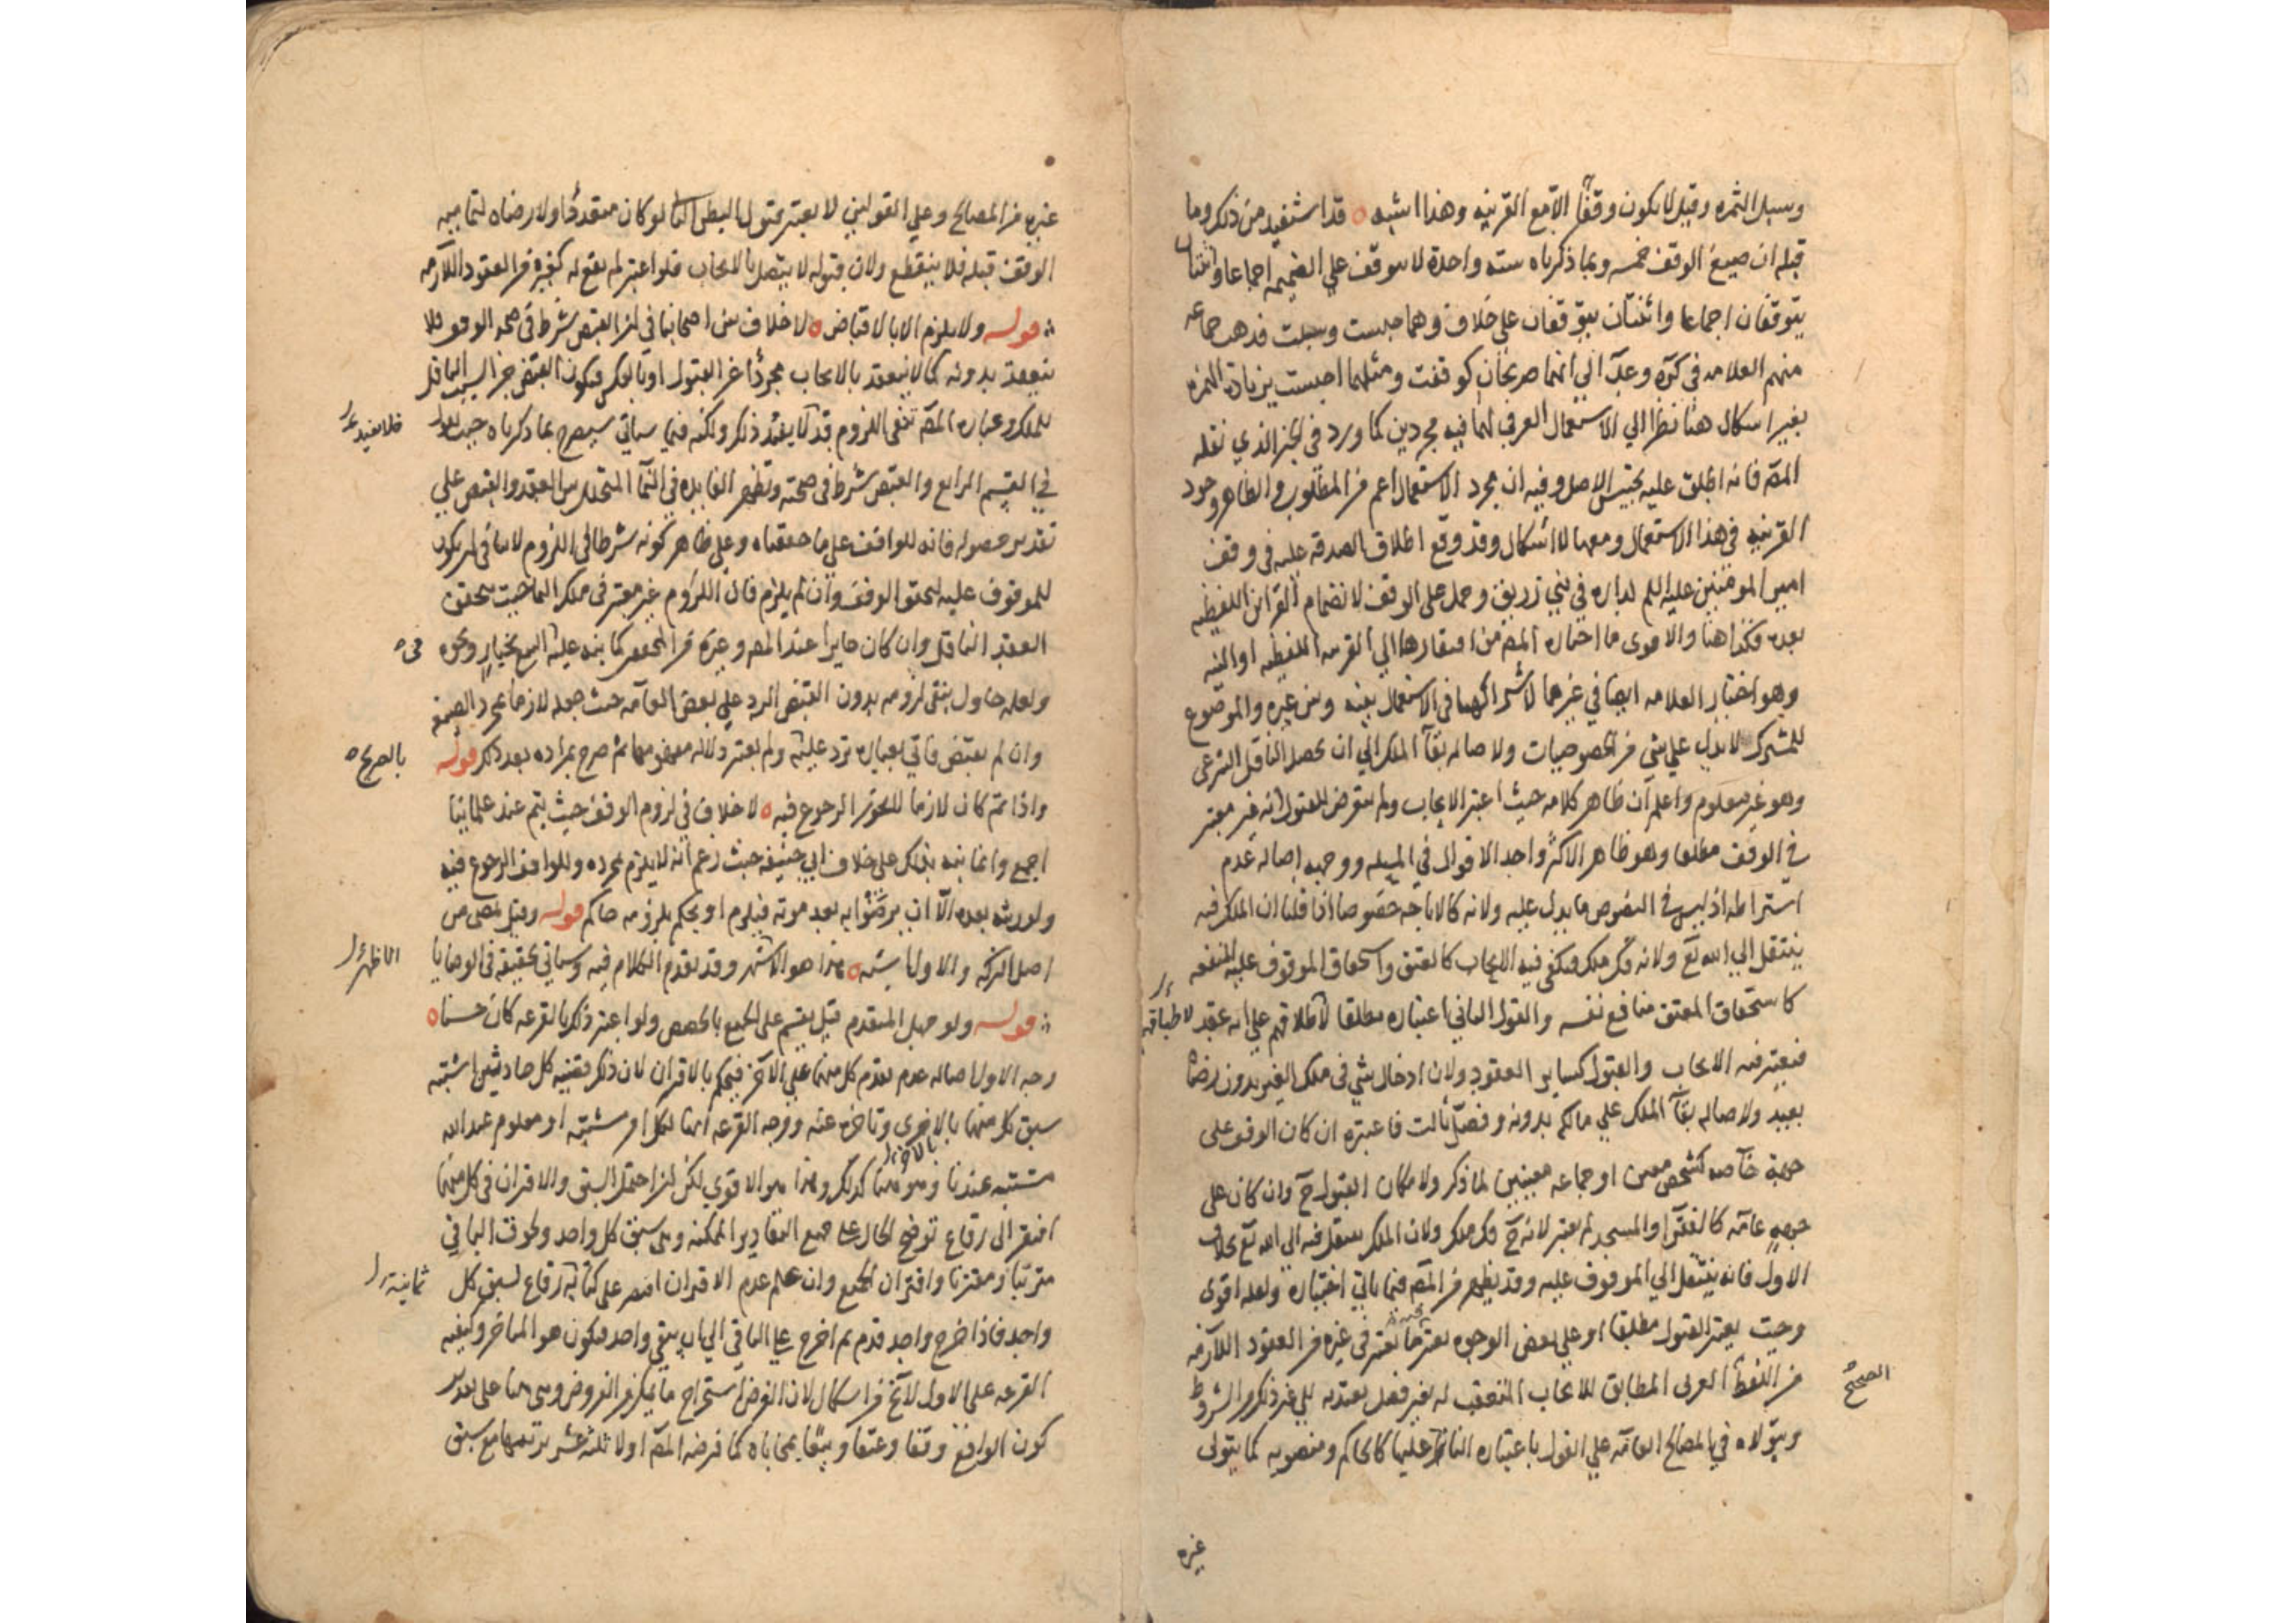 وسبل الثمره وقيل لا يكون وقفا الا مع القرينه وهذا اشبه ٥ قد استفيد من ذلك وما
قبله ان صيغ الوقف خمسه وبما ذكرناه سته واحدة لا يتوقف علي الضميمه اجماعا واثنتان
يتوقفان اجماعا واثنتان يتوقفان علي خلاف وهما حبست وسبلت فذهب جماعه
منهم العلامه في كره وعد الي انهما صريحان كوقفت ومثلهما احبست بزيادة الهمزه
بغير اشكال هنا نظرا الي الاستعمال العرفي لهما فيه مجردين كما ورد في الخبر الذي نقله
المص فانه اطلق عليه تحبيس الاصل وفيه ان مجرد الاستعمال اعم من المطلوب والظاهر وجود
القرينه في هذا الاستعمال ومعها لا اشكال وقد وقع اطلاق الصدقه عليه في وقف
امير المومنين عليه السلم لداره في بني زريق وحمل علي الوقف لانضمام القراين اللفظيه
بعده فكذا هنا والاقوى ما اختاره المص من افتقارها الي القرينه اللفظيه او النيه
وهو اختيار العلامه ايضا في غيرها لاشتراكهما في الاستعمال بينه وبين غيره والموضوع
للمشترك لا يدل علي شي من الخصوصيات ولاصاله بقا الملك الي ان يحصل الناقل الشرعي
وهو غير معلوم واعلم ان ظاهر كلامه حيث اعتبر الايجاب ولم يتعرض للقبول انه غير معتبر
في الوقف مطلقا وهو ظاهر الاكثر واحد الاقوال في المسله ووجهه اصاله عدم
اشتراطه اذ ليس في النصوص ما يدل عليه ولانه كالاباحه خصوصا اذا قلنا ان الملك فيه
ينتقل الي الله تع ولانه فك ملك فيكفي فيه الايجاب كالعتق واستحقاق الموقوف عليه للمنفعه
كاستحقاق المعتق منافع نفسه والقول الثاني اعتباره مطلقا لاطلاقهم علي انه عقد
لاطباقهم
فيعتبر فيه الايجاب والقبول كساير العقود ولان ادخال شي في ملك الغير بدون رضاه
بعيد ولاصاله بقا الملك علي مالكه بدونه وفصل ثالث فاعتبره ان كان الوقف على
جهة خاصه كشخص معين او جماعه معينين لما ذكر ولامكان القبول ح وان كان على
جهه عامه كالفقرا والمسجد لم يعتبر لانه ح فك ملك ولان الملك ينتقل فيه الي الله تع بخلاف
الاول فانه ينتقل الي الموقوف عليه وقد يظهر من المص فيما ياتي اختياره ولعله اقوى
وحيث يعتبر القبول مطلقا او علي بعض الوجوه يعتبر فيه ما يعتبر في غيره من العقود اللازمه
من اللفظ العربي المطابق للايجاب المتعقب له بغير فصل يعتد به الي غير ذلك من الشروط
الصحيح
ويتولاه في المصالح العامه علي القول باعتباره الناظر عليها كالحاكم ومنصوبه كما يتولى
غيره
غيره من المصالح وعلي القولين لا يعتبر قبول البطن الثاني لو كان متعددا ولا رضاه لتماميه
الوقف قبله فلا ينقطع ولان قبوله لا يتصل بالايجاب فلو اعتبر لم يقع له كغيره من العقود اللازمه
قوله ولا يلزم الا بالاقباض ٥ لا خلاف بين اصحابنا في ان القبض شرط في صحه الوقف فلا
ينعقد بدونه كما لا ينعقد بالايجاب مجردا عن القبول او بالعكس فيكون القبض جز السبب الناقل
للملك وعباره المص تنفي اللزوم قد لا يفيد ذلك ولكنه فيما سياتي سيصرح بما ذكرناه حيث
فلا يفيد
في القسم الرابع والقبض شرط في صحته وتظهر الفايده في النما المتخلل بين العقد والقبض علي
تقدير حصوله فانه للواقف علي ما حققناه وعلي ظاهر كونه شرطا في اللزوم لا ينافي ان يكون
للموقوف عليه لتحقق الوقف وان لم يلزم فان اللزوم غير معتبر في ملك النما حيث يتحقق
العقد الناقل وان كان جايزا عند المص وغيره من المحققين كما ينبه عليه البيع بخيار ونحوه
في
ولعله حاول بنفي لزومه بدون القبض الرد علي بعض العامه حيث جعله لازما بمجرد الصيغه
وان لم يقبض فاتي بعباره ترد عليه ولم يعتبر دلاله مفهومها ثم صرح بمراده بعد ذلك قوله
بالصريح
واذا تم كان لازما لا يجوز الرجوع فيه ٥ لا خلاف في لزوم الوقف حيث يتم عند علماينا
اجمع وانما نبه بذلك علي خلاف ابي حنيفه حيث زعم انه لا يلزم بمجرده وللواقف الرجوع فيه
ولورثته بعده الا ان يرضوا به بعد موته فيلزم او يحكم بلزومه حاكم قوله وقيل يمضي من
اصل التركه والاول اشبه ٥ هذا هو الاشهر وقد تقدم الكلام فيه وسياتي تحقيقه في الوصايا
الاظهر
قوله ولو جهل المتقدم قيل يقسم على الجميع بالحصص ولو اعتبر ذلك بالقرعه كان حسنا ٥
وجه الاول اصاله عدم تقدم كل منهما علي الاخر فيحكم بالاقتران لان ذلك قضيه كل حادثين اشتبه
سبق كل منهما بالاخرى وتاخره عنه ووجه القرعه انها لكل امر مشتبه او معلوم عند الله
بالاخر
مشتبه عندنا وهو هنا كذلك وهذا هو الاقوي لكن لما احتمل السبق والاقتران في كل منهما
افتقر الى رقاع توضح الحال علي جميع التقادير الممكنه وهي سبق كل واحد ولحوق الباقي
مترتبا ومقترنا واقتران الجميع وان علم عدم الاقتران اقتصر على كتابه رقاع لسبق كل
ثمانيه
واحد فاذا خرج واحد قدم ثم اخرج علي الباقي الي ان يبقي واحد فيكون هو المتاخر وكيفيه
القرعه على الاول لا تخ من اشكال لان الغرض استخراج ما يمكن من الفروض وهي هنا على تقدير
كون الواقع وقفا وعتقا وبيعا بمحاباه كما فرضه المص اولا ثلثه عشر ترتيبها مع سبق